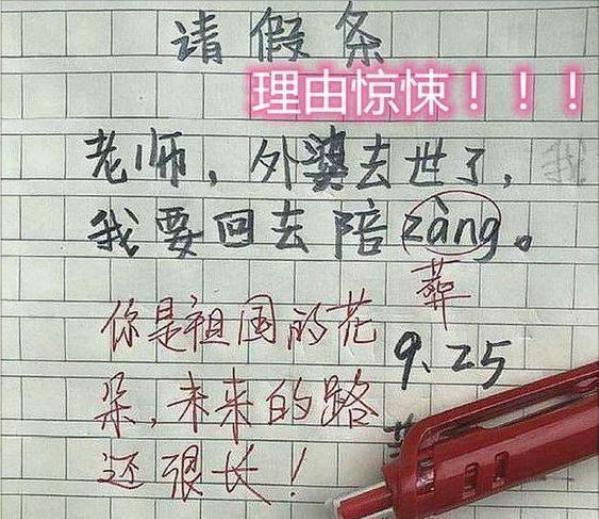 请假条
理由惊悚！！！
老师，外婆去世了，
我要回去陪zàng。
葬
你是祖国的花
朵，未来的路
还很长！
9.25